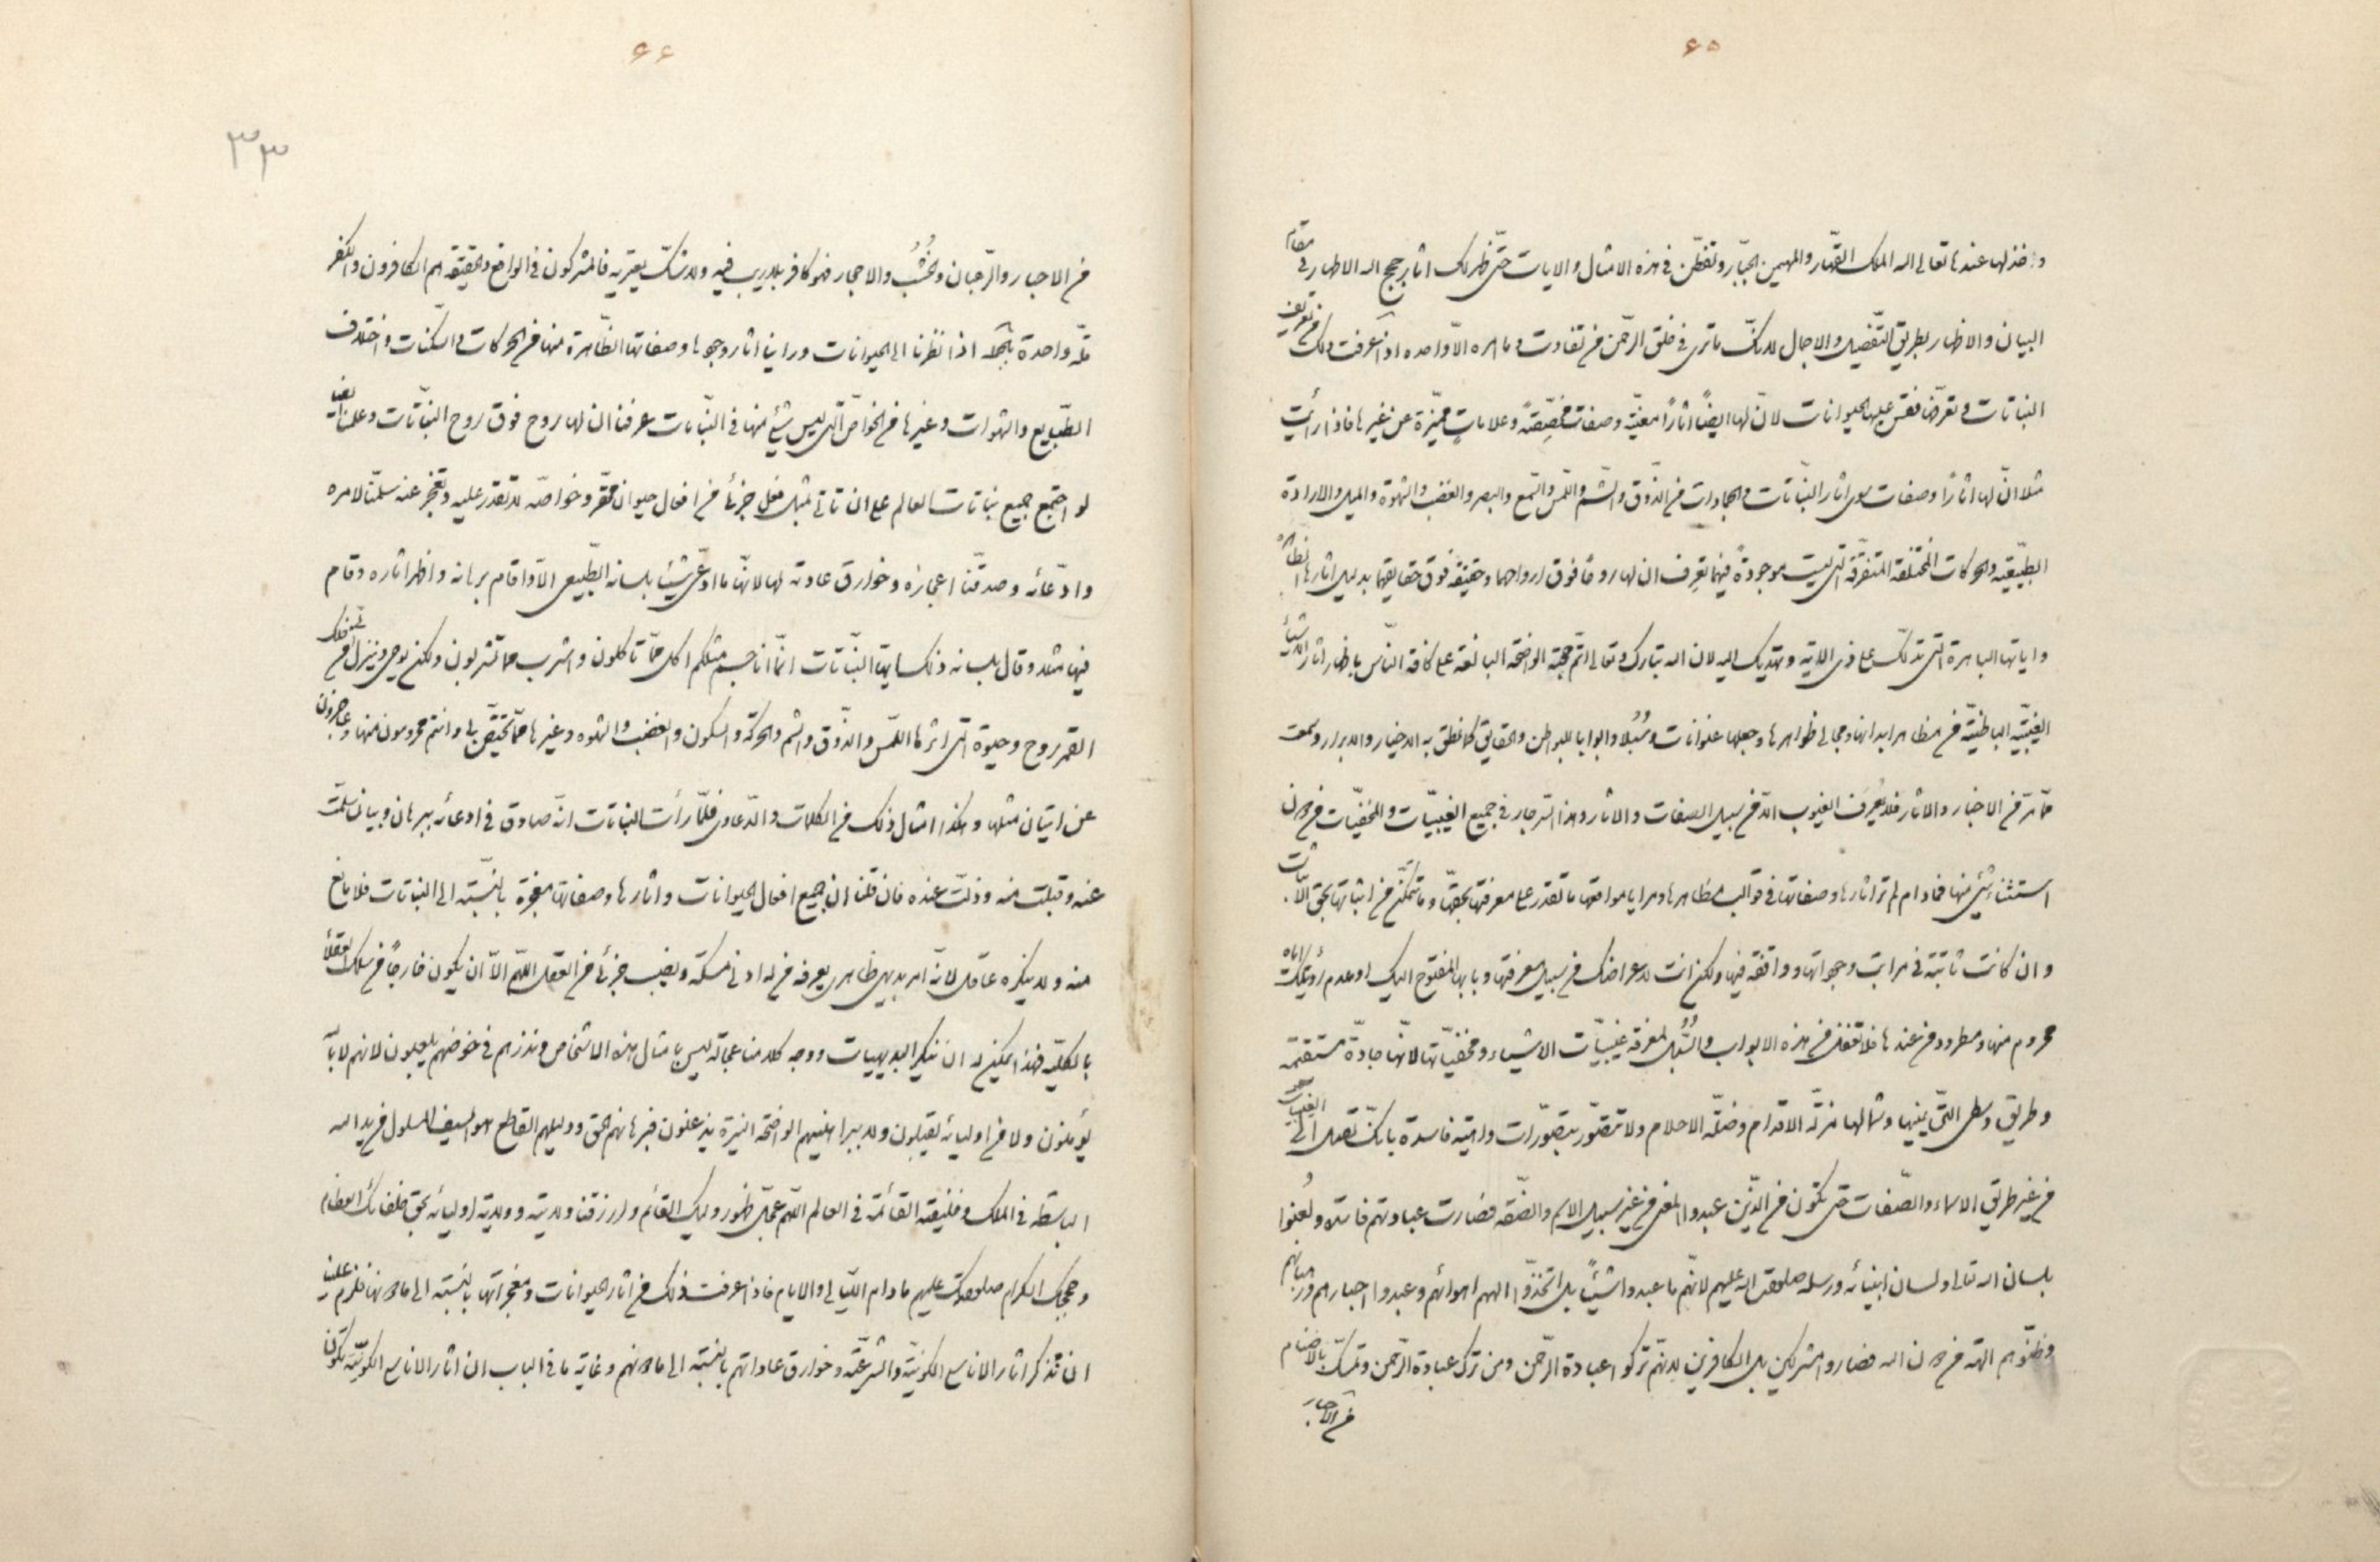 ٦٥
و اخذلها عندها تعالى الله الملك القهّار والمهيمن الجبّار وتفطّن في هذه الامثال والايات حتّى ظهر لك اثار حجج الله الاطهار في مقام
البيان والاظهار بطريق التّفصيل والاجمال لانّك ما ترى في خلق الرحمن من تفاوت وما امره الّا واحده اذا عرفت ذلك من تعريف
النباتات وتعرّضنا فقس عليها الحيوانات لانّ لها ايضاً اثاراً معيّنة وصفات مخصّصة وعلامات مميّزة عن غيرها فاذا رأيت
مثلا انّ لها اثاراً وصفات سوى اثار النبّاتات والجمادات من الذّوق والشّم واللّمس والسّمع والبصر والغضب والشهوة والميل والارادة
الطبيعيّة والحركات المختلفة المتفرّقة التي ليست موجودةً فيهما تعرف ان لها روحا فوق ارواحهما وحقيقة فوق حقايقهما بدليل اثارها الظاهرة
واياتها الباهرة التي تدلّك على ذى الاية وتهديك اليه لان الله تبارك وتعالى اتمّ حجّته الواضحة البالغة على كافة النّاس باظهار اثار الاشياء
الغيبيّة الباطنيّة من مظاهر ابدانها ومجالى ظواهرها وجعلها عنوانات وسُبُلا وابوابا للبواطن والحقايق كما نطق به الاخيار والابرار وسمعت
ممّا ترّ من الاخبار والاثار فلا يُعرف الغيوب الّا من سبيل الصفات والاثار وهذا السّر جار في جميع الغيبيّات والمخفيّات من دون
استثناء شيئ منها فما دام لم تر اثارها وصفاتها في قوالب مظاهرها ومرايا مواقعها ما تقدر على معرفتها بحقّها وما تتمكّن من اثباتها بحق الاثبات
وان كانت ثابتة في مراتب وجوداتها وواقفه فيها ولكن انت لاعراضك من سبيل معرفتها وبابها المفتوح اليك او عدم رؤيتك اياه
محروم منها ومطرود من عندها فلا تغفل من هذه الابواب والسُّبُل لمعرفة غيبيّات الاشياء ومخفيّاتها لانّها جادّة مستقيمة
وطريق وسطى التّى يمينها وشمالها مزلّة الاقدام ومضلّة الاحلام ولا تتصوّر بتصوّرات واهية فاسدة بانّك تصل الى الغيب
من غير طريق الاسماء والصّفات حتى تكون من الّذين عبدوا المعنى من غير سبيل الاسم والصّفة فصارت عبادتهم فاسدة ولُعنوا
بلسان الله تعالى ولسان انبيائه ورسله صلوات الله عليهم لانّهم ما عبدوا شيئاً بل اتّخذوا الههم اهوائهم وعبدوا احبارهم ورهبانهم
وظنّوهم الهة من دون الله فصاروا مشركين بل الكافرين لانّهم تركوا عبادة الرّحمن ومن ترك عبادة الرّحمن وتمسّك بالاصنام
من الاحبار
٦٦
٣٣
من الاحبار والرّهبان والخُشُب والاحجار فهو كافر بلا ريب فيه ولا شكّ يعتريه فالمشركون في الواقع والحقيقة هم الكافرون والكفر
ملّة واحدة بالجملة اذا نظرنا الى الحيوانات وراينا اثار وجودها وصفاتها الظّاهرة منها من الحركات والسّكنات واختلاف
الطّبايع والشهوات وغيرها من الخواصّ التى ليس شيئ منها في النّباتات عرفنا ان لها روح فوق روح النّباتات وعلمنا
لو اجتمع جميع نباتات العالم على ان تاتى بمثل فعل جزئى من افعال حيوان محقّر وخواصّه لا تقدر عليه وتعجز عنه سلّمنا لامره
وادّعائه وصدقنا اعجازه وخوارق عادته لها لانّها ما ادّعى شيئا بلسانه الطّبيعى الّا واقام برهانه واظهر اثاره وقام
فيها مثلا وقال بلسانه ذلك ايّها النّباتات انّما انا جسم مثلكم اكل ممّا تاكلون واشرب ممّا تشربون ولكن يوحى وينزل من فلك
القمر روح وحيوة التى اثرها اللّمس والذّوق والشم والحركة والسكون والغضب والشهوة وغيرها ممّا تختصّ بها وانتم محرومون منها وعاجزون
عن اتيان مثلها وهكذا امثال ذلك من الكلمات والدّعاوى فلمّا رأت النباتات انّه صادق في ادعائه ببرهان وبيان سلّمت
عنه وقبلت منه وذلّت عنده فان قلنا ان جميع افعال الحيوانات واثارها وصفاتها معجزة بالنسبة الى النباتات فلا مانع
منه ولا ينكره عاقل لانّه امر بديهى ظاهرى يعرفه من له ادنى مسكة ونصيب جزئى من العقل اللهم الّا ان يكون خارجاً من سلك العقلاء
بالكليّة فهذا يمكن له ان ينكر البديهيات ووجه كلامنا عجالة ليس بامثال هذه الاشخاص ونذرهم في خوضهم يلعبون لانهم لا بالله
يؤمنون ولا من اوليائه يقبلون ولا ببراهينهم الواضحة النيّرة يذعنون فبرهانهم الحق ودليلهم القاطع هو السيف المسلول من يد الله
الباسطة في الملك وخليفته القائمة في العالم اللهم عجّل ظهور وليك القائم وارزقنا ولايته وولاية اوليائه بحق خلفائك العظام
وحججك الكرام صلواتك عليهم ما دام اللّيالى والايام فاذا عرفت ذلك من اثار الحيوانات ومعجزاتها بالنسبة الى ما دونها فلزم علينا
ان نذكر اثار الاناسى الكونيّة والشرعيّة وخوارق عاداتهم بالنسبة الى ما دونهم وغاية ما في الباب ان اثار الاناسى الكونيّة تكون